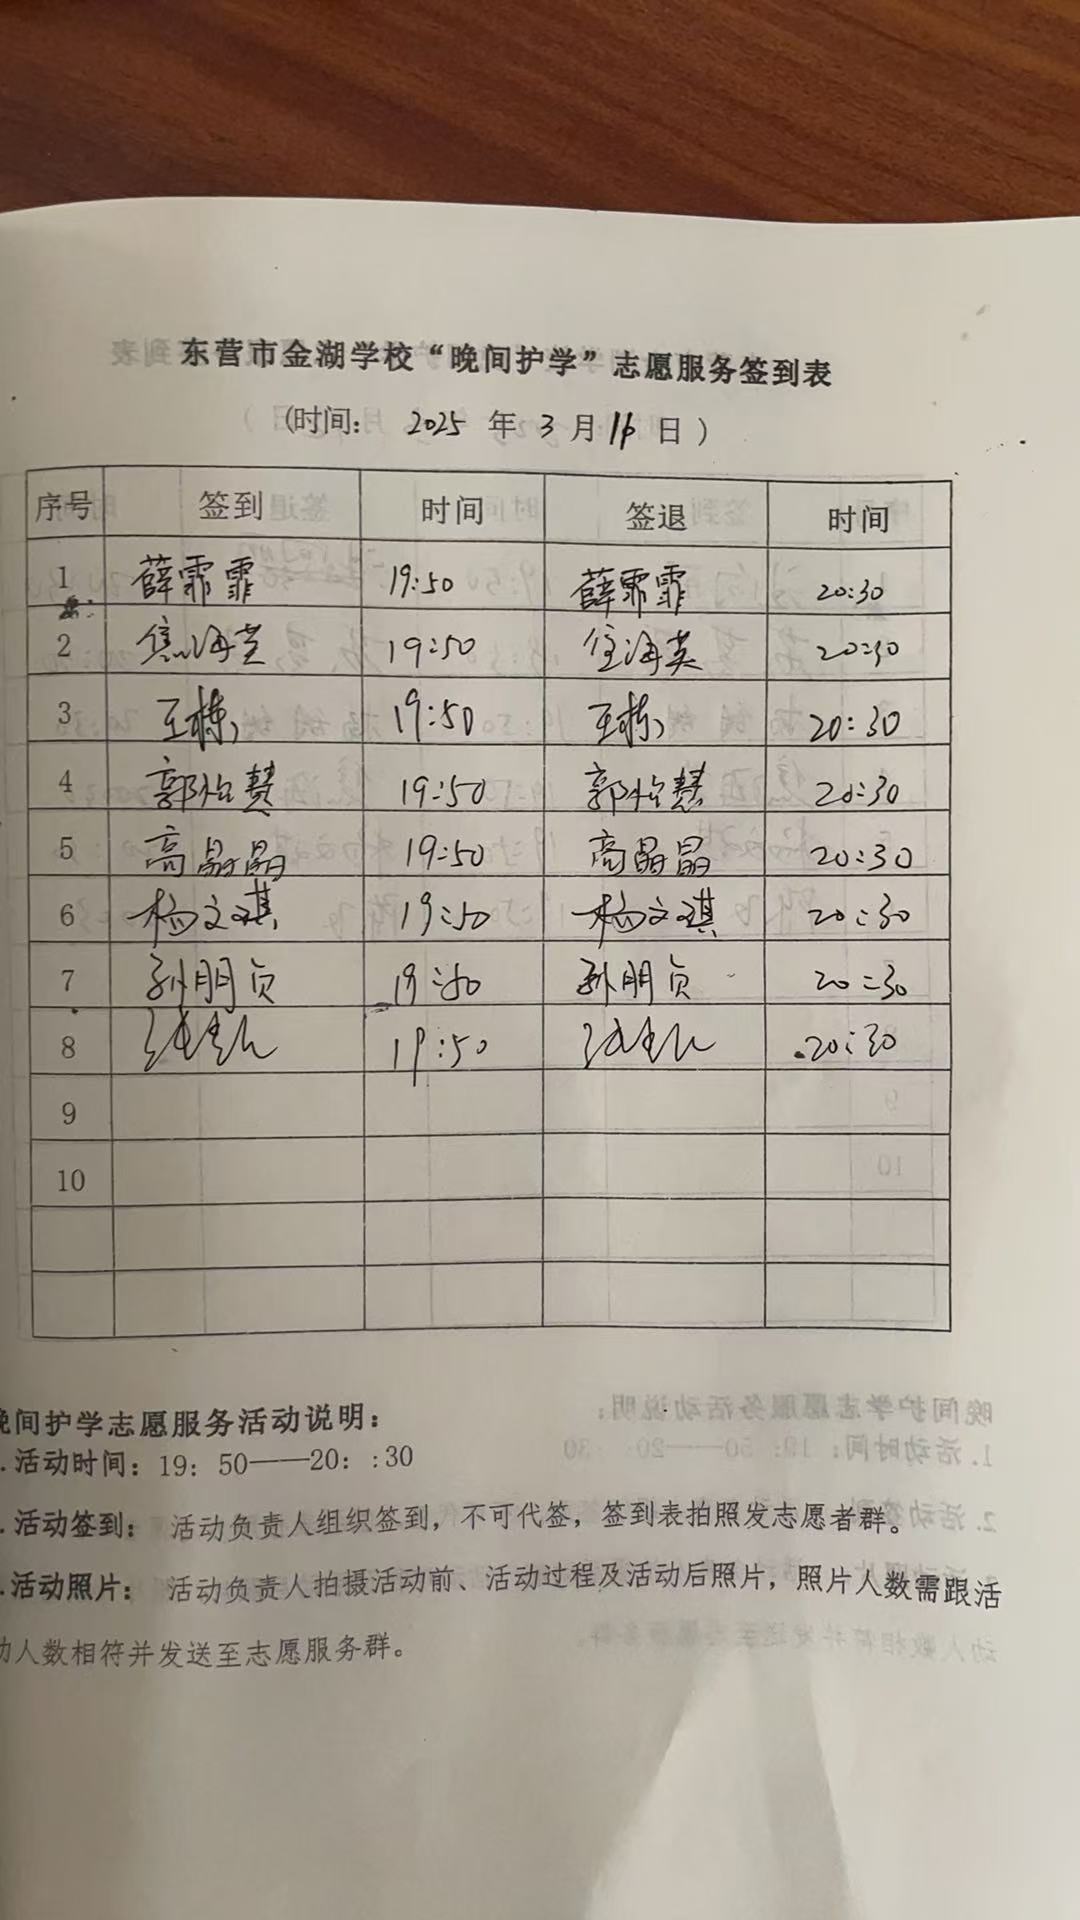 东营市金湖学校“晚间护学”志愿服务签到表
(时间: 2025 年 3 月 16 日 )
序号 签到 时间 签退 时间
1 薛霏霏 19:50 薛霏霏 20:30
2 焦海英 19:50 焦海英 20:30
3 王栋 19:50 王栋 20:30
4 郭怡慧 19:50 郭怡慧 20:30
5 高晶晶 19:50 高晶晶 20:30
6 杨文琪 19:50 杨文琪 20:30
7 孙朋贞 19:50 孙朋贞 20:30
8 19:50 20:30
9
10
晚间护学志愿服务活动说明:
.活动时间: 19: 50——20: :30
.活动签到: 活动负责人组织签到, 不可代签, 签到表拍照发志愿者群。
.活动照片: 活动负责人拍摄活动前、活动过程及活动后照片, 照片人数需跟活
动人数相符并发送至志愿服务群。